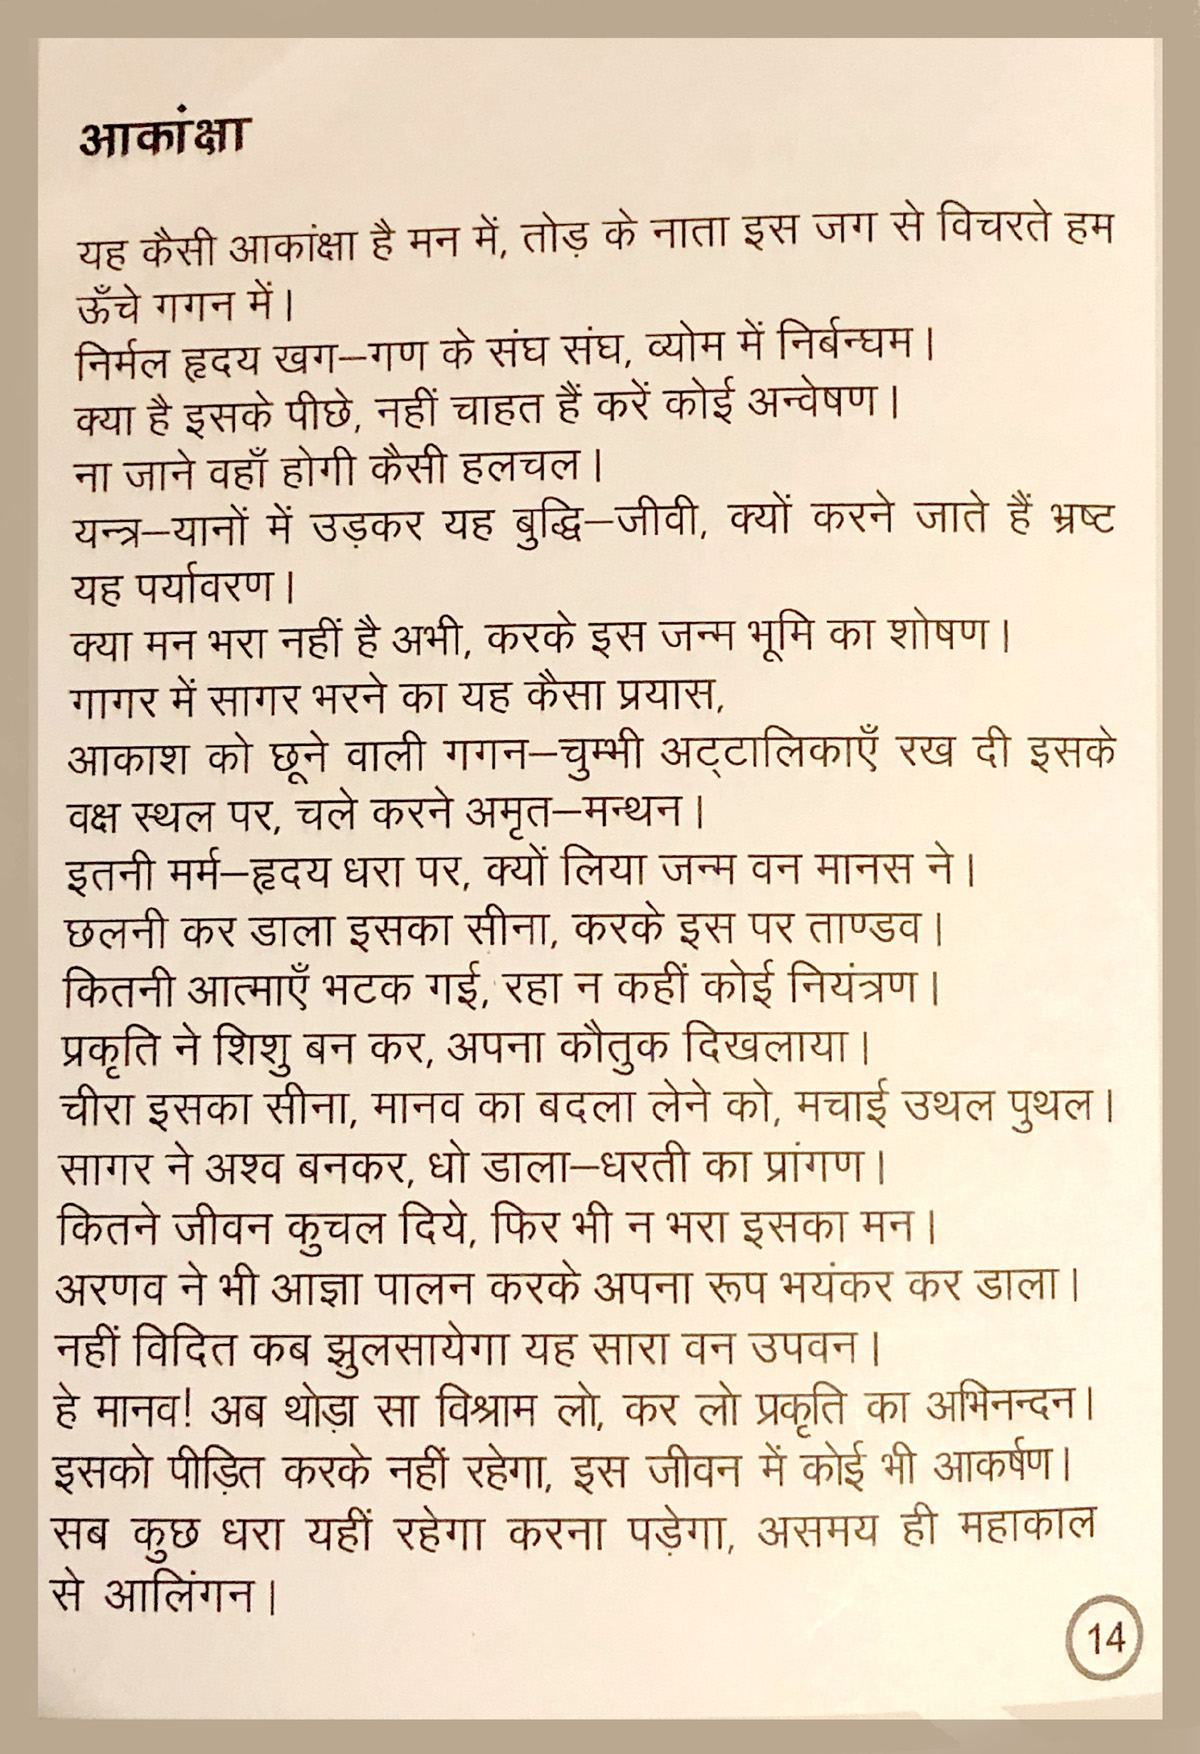 आकांक्षा
यह कैसी आकांक्षा है मन में, तोड़ के नाता इस जग से विचरते हम
ऊँचे गगन में।
निर्मल हृदय खग–गण के संघ संघ, व्योम में निर्बन्घम।
क्या है इसके पीछे, नहीं चाहत हैं करें कोई अन्वेषण।
ना जाने वहाँ होगी कैसी हलचल।
यन्त्र–यानों में उड़कर यह बुद्धि–जीवी, क्यों करने जाते हैं भ्रष्ट
यह पर्यावरण।
क्या मन भरा नहीं है अभी, करके इस जन्म भूमि का शोषण।
गागर में सागर भरने का यह कैसा प्रयास,
आकाश को छूने वाली गगन–चुम्भी अट्टालिकाएँ रख दी इसके
वक्ष स्थल पर, चले करने अमृत–मन्थन।
इतनी मर्म–हृदय धरा पर, क्यों लिया जन्म वन मानस ने।
छलनी कर डाला इसका सीना, करके इस पर ताण्डव।
कितनी आत्माएँ भटक गई, रहा न कहीं कोई नियंत्रण।
प्रकृति ने शिशु बन कर, अपना कौतुक दिखलाया।
चीरा इसका सीना, मानव का बदला लेने को, मचाई उथल पुथल।
सागर ने अश्व बनकर, धो डाला–धरती का प्रांगण।
कितने जीवन कुचल दिये, फिर भी न भरा इसका मन।
अरणव ने भी आज्ञा पालन करके अपना रूप भयंकर कर डाला।
नहीं विदित कब झुलसायेगा यह सारा वन उपवन।
हे मानव! अब थोड़ा सा विश्राम लो, कर लो प्रकृति का अभिनन्दन।
इसको पीड़ित करके नहीं रहेगा, इस जीवन में कोई भी आकर्षण।
सब कुछ धरा यहीं रहेगा करना पड़ेगा, असमय ही महाकाल
से आलिंगन।
14